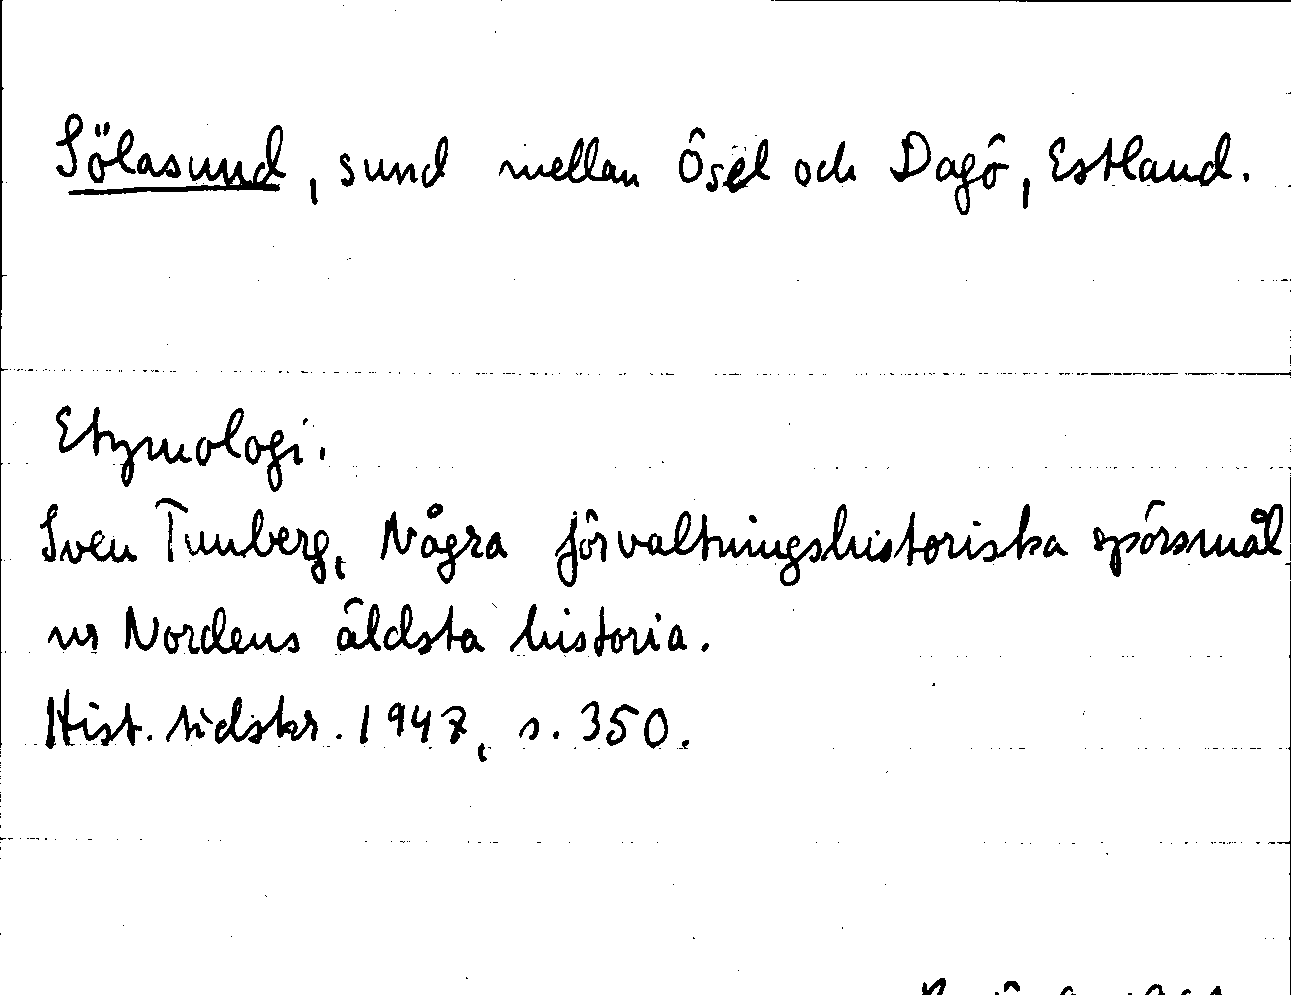 Sölasund, sund mellan Ösel och Dagö, Estland.
Etymologi.
Sven Tunberg, Några förvaltningshistoriska spörsmål
ur Nordens äldsta historia.
Hist. tidskr. 1947, s. 350.